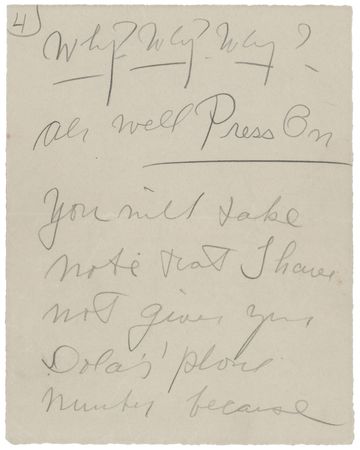 4
Why? Why? Why?
Ah well Press On
You will take
note that I have
not given you
Dola's' phone
number because